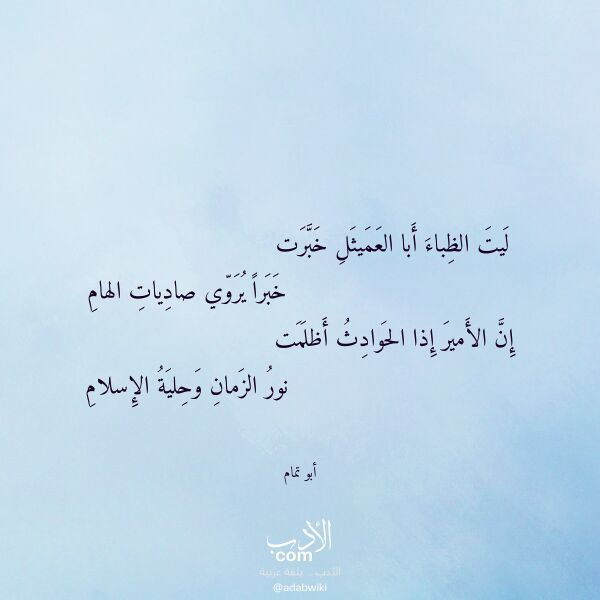 لَيتَ الظِباءَ أَبا العَمَيثَلِ خَبَّرَت
خَبَراً يُرَوّي صادِياتِ الهامِ
إِنَّ الأَميرَ إِذا الحَوادِثُ أَظلَمَت
نورُ الزَمانِ وَحِليَةُ الإِسلامِ
أبو تمام
الأدب
com
الأدب .. بلغة عربية
@adabwiki